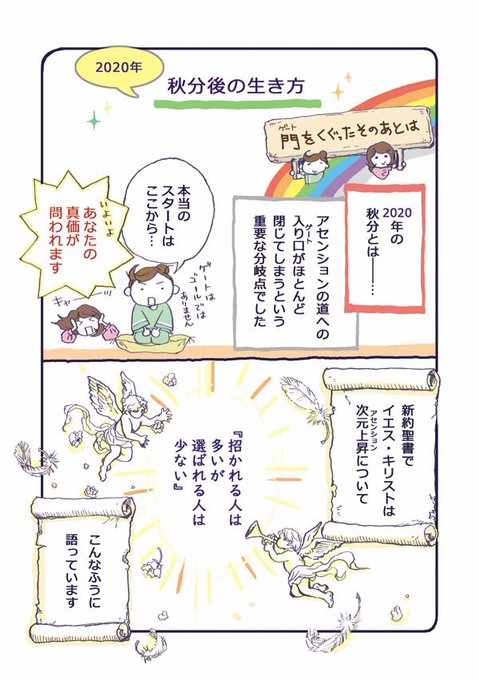 2020年
秋分後の生き方
ゲート
門をくぐったそのあとは
2020年の
秋分とは――……
アセンションの道への
ゲート
入り口がほとんど
閉じてしまうという
重要な分岐点でした
本当の
スタートは
ここから…
ゲートは
ゴールでは
ありません
いよいよ
あなたの
真価が
問われます
キャー
新約聖書で
イエス・キリストは
アセンション
次元上昇について
『招かれる人は
多いが
選ばれる人は
少ない』
こんなふうに
語っています